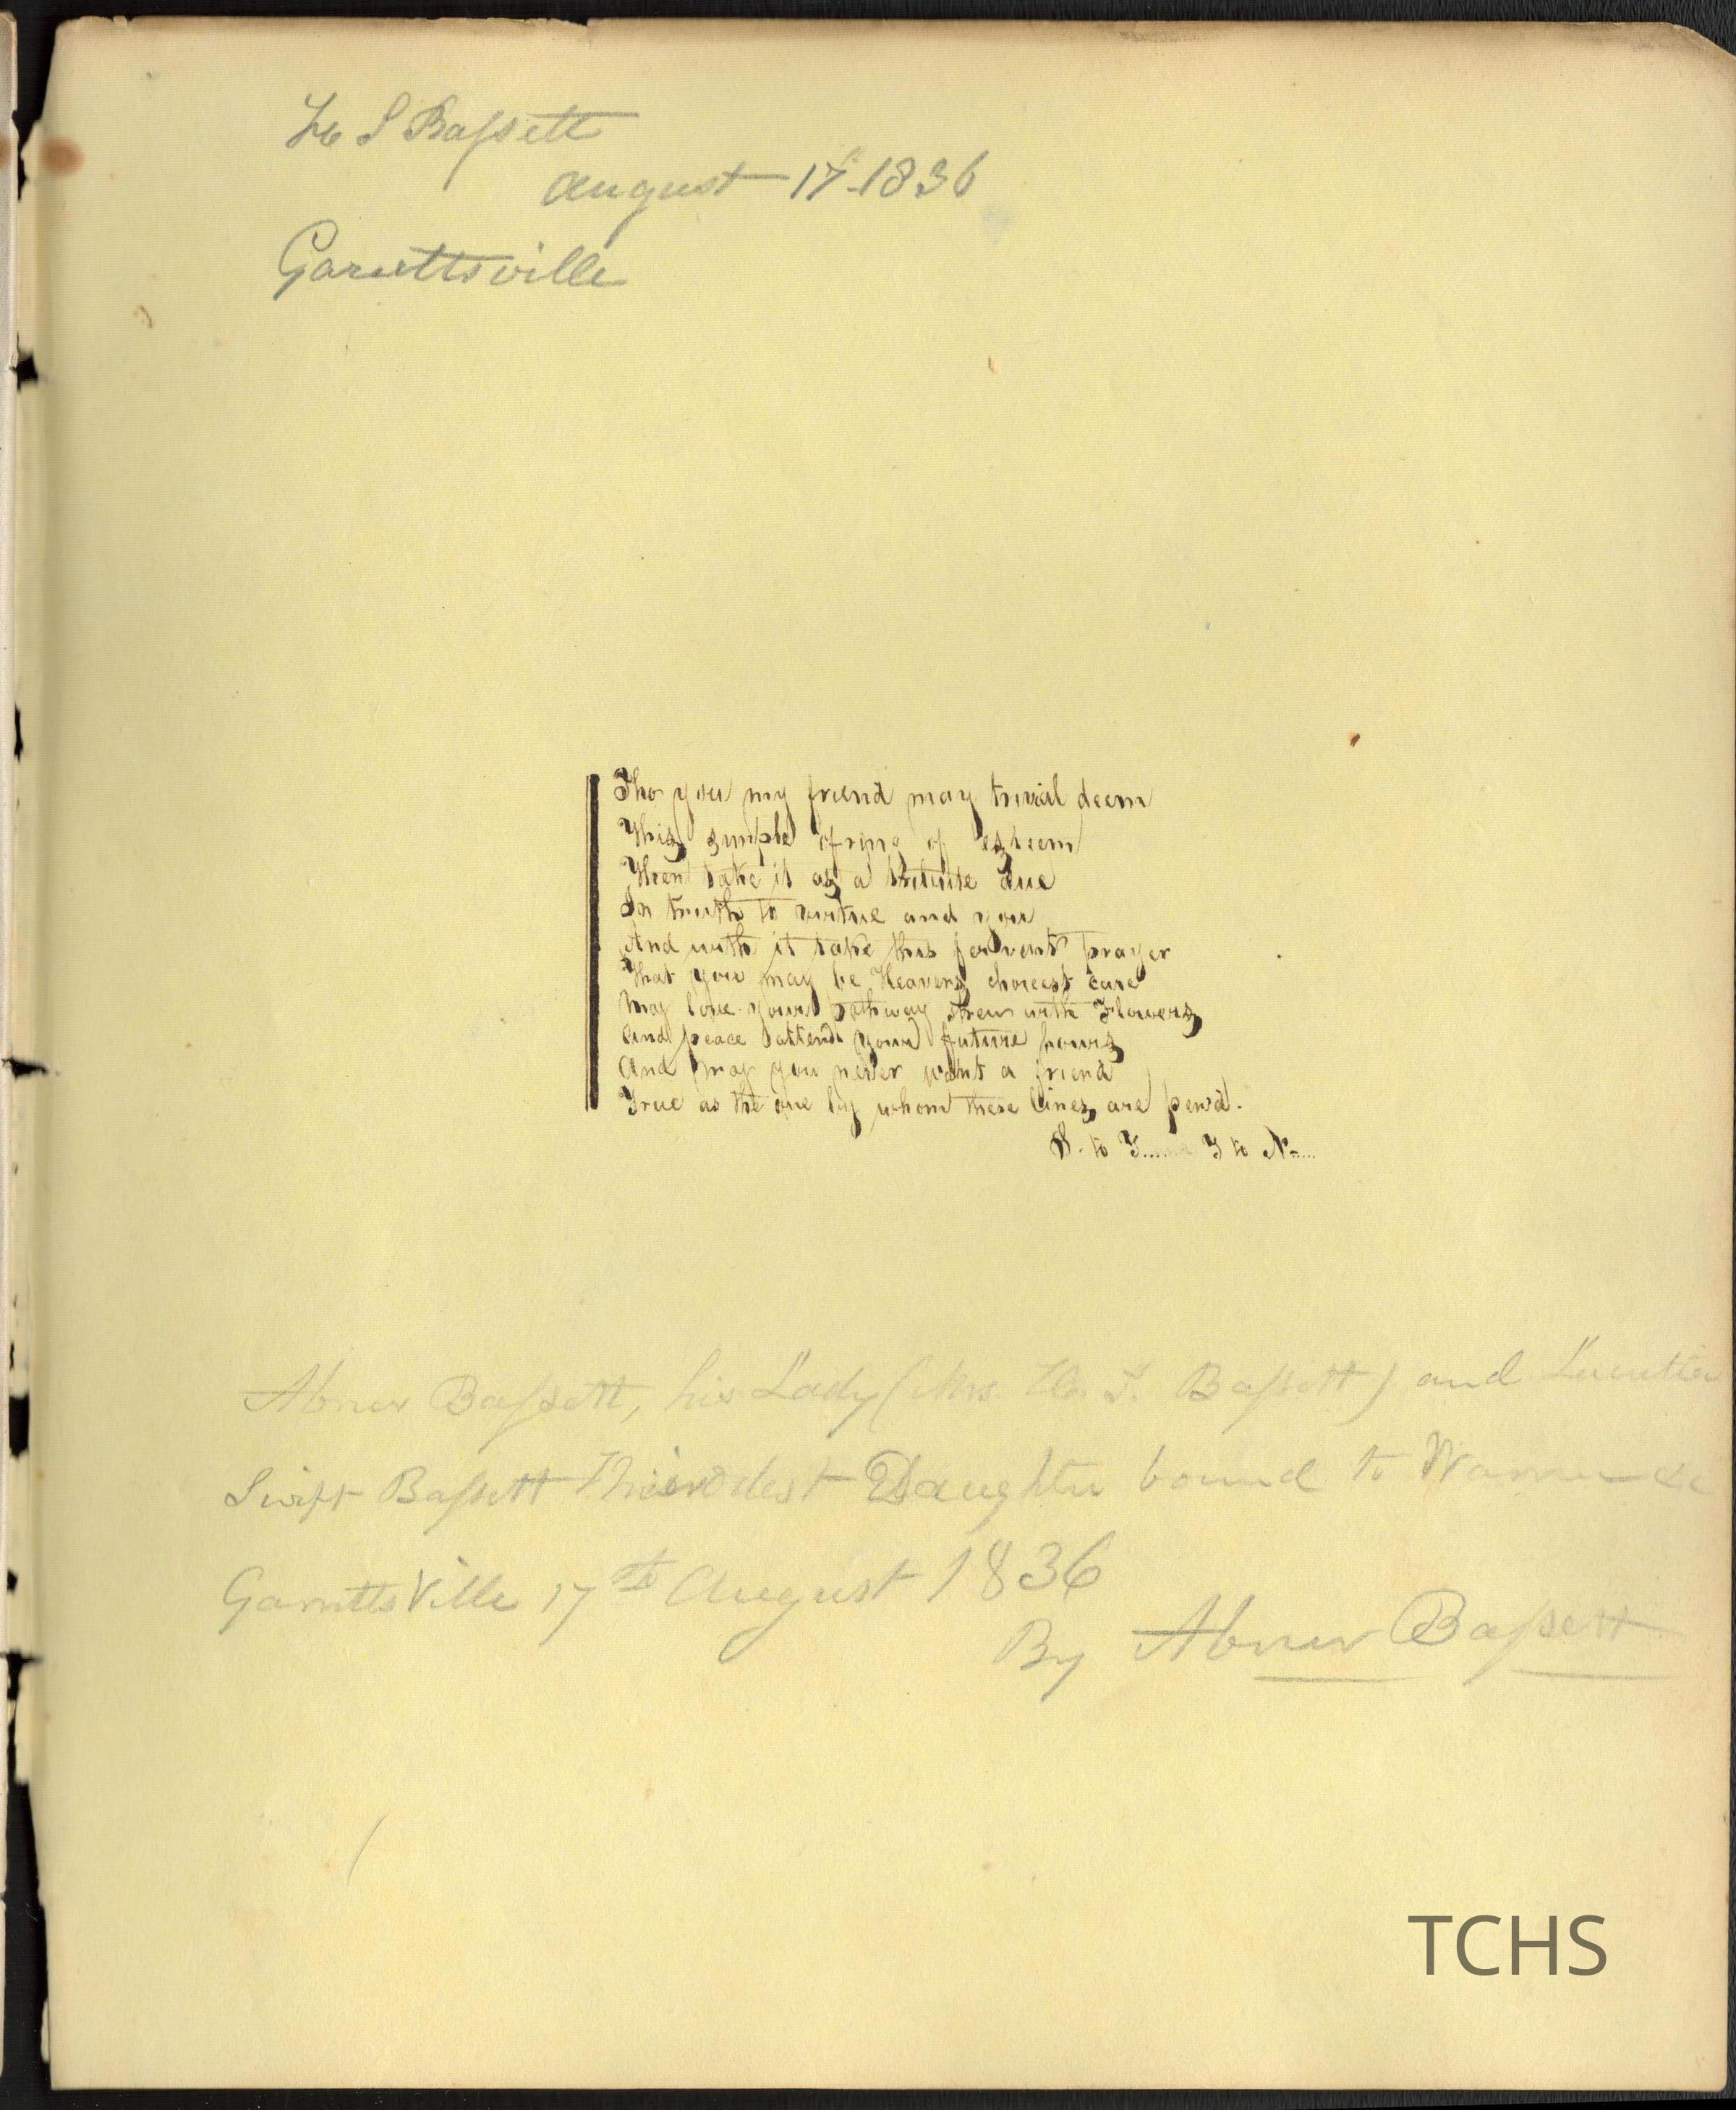 S Bassett
August 17th 1836
Garettsville
Tho you my friend may trivial deem
This simple ofring of esteem
Then take it as a tribute due
In truth to virtue and you
And with it take this fervent prayer
That you may be Heavens choicest care
May love your pathway strew with Flowers
And peace attend your future hours
And may you never want a friend
True as the one by whom these lines are pen'd.
S. to T..... T to N.....
Abner Bassett, his Lady (Mrs. S. Bassett) and
Swift Bassett Daughter bound to
Garretts Ville 17th August 1836
By Abner Bassett
TCHS